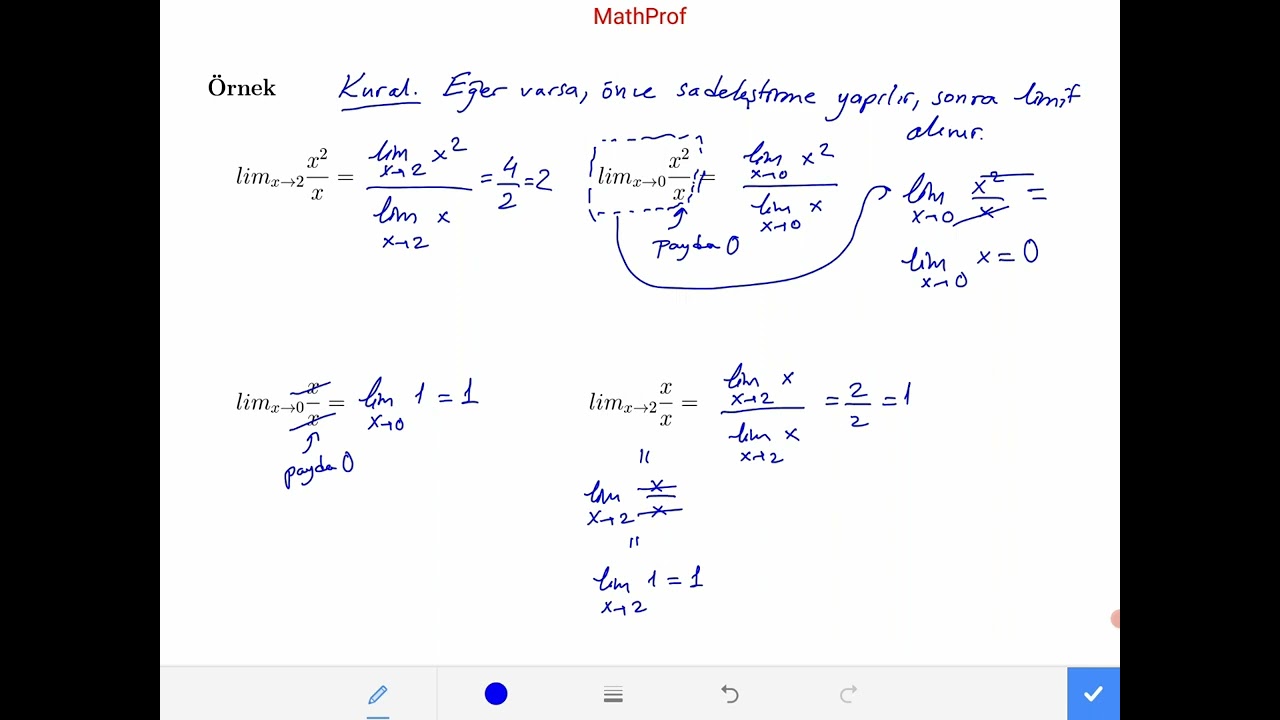 MathProf
Örnek
Kural. Eğer varsa, önce sadeleştirme yapılır, sonra limit
alınır.
lim_{x→2} x²/x = lim_{x→2} x² / lim_{x→2} x = 4/2 = 2
lim_{x→0} x²/x ≠ lim_{x→0} x² / lim_{x→0} x
payda 0
lim_{x→0} x²/x =
lim_{x→0} x = 0
lim_{x→0} x/x = lim_{x→0} 1 = 1
payda 0
lim_{x→2} x/x = lim_{x→2} x / lim_{x→2} x = 2/2 = 1
=
lim_{x→2} x/x
=
lim_{x→2} 1 = 1